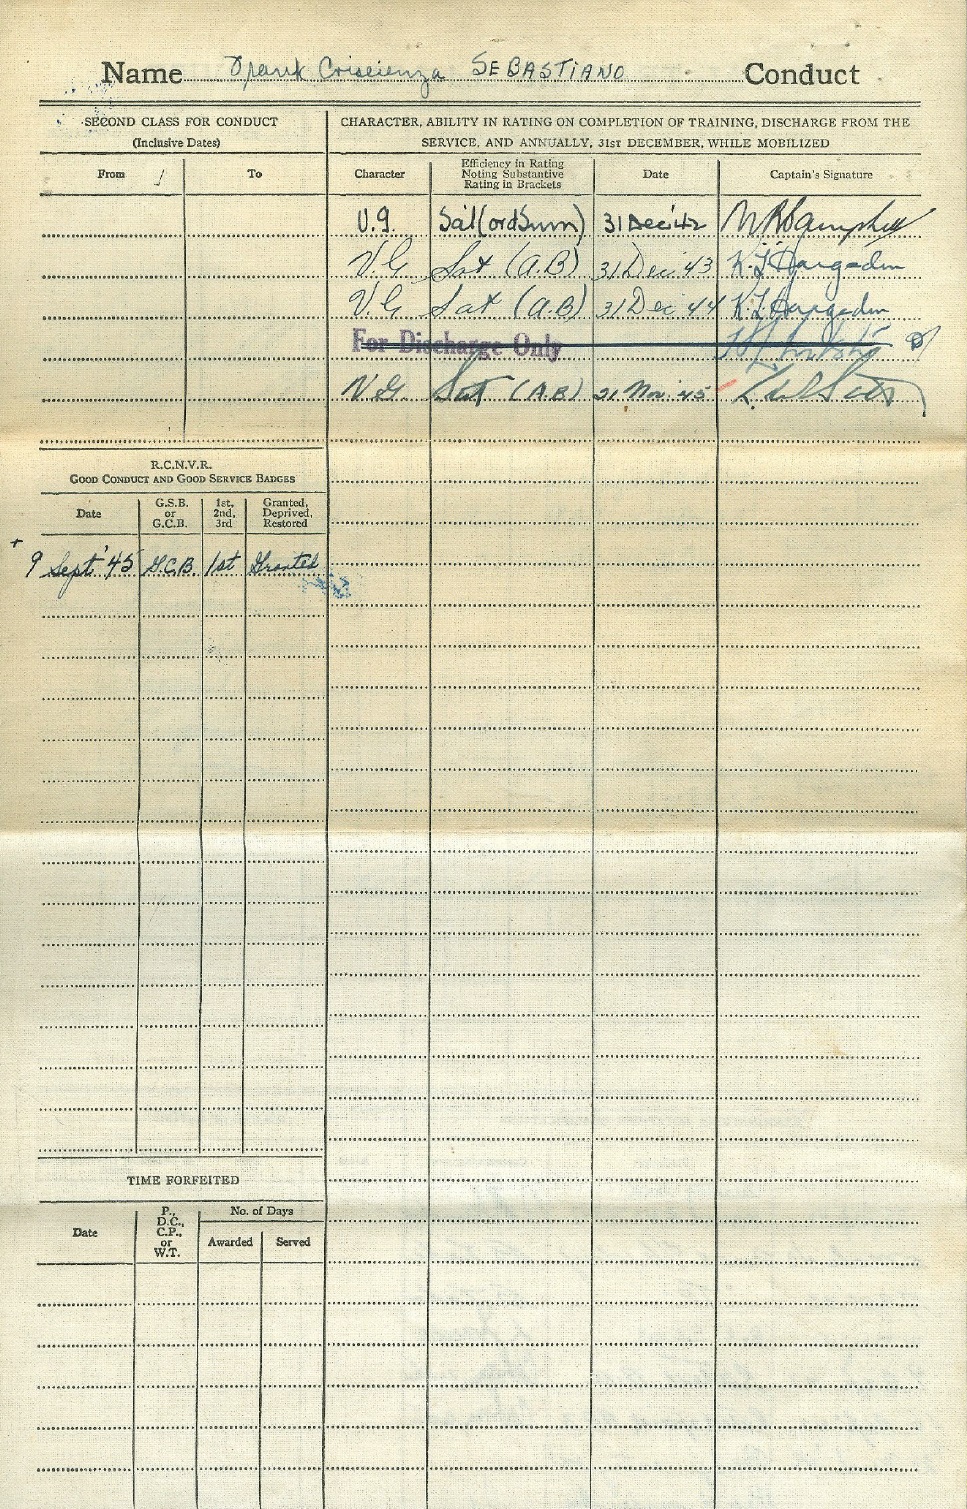 Name Frank Coscienza SEBASTIANO Conduct
SECOND CLASS FOR CONDUCT
(Inclusive Dates)
From To
CHARACTER, ABILITY IN RATING ON COMPLETION OF TRAINING, DISCHARGE FROM THE
SERVICE, AND ANNUALLY, 31ST DECEMBER, WHILE MOBILIZED
Character
Efficiency in Rating
Noting Substantive
Rating in Brackets
Date
Captain's Signature
V.G. Sat (ord Smn) 31 Dec '42
V.G. Sat (A.B) 31 Dec '43 K.L. Hargadon
V.G. Sat (A.B) 31 Dec '44 K.L. Hargadon
For Discharge Only
V.G. Sat (A.B) 21 Nov. '45
R.C.N.V.R.
GOOD CONDUCT AND GOOD SERVICE BADGES
Date
G.S.B.
or
G.C.B.
1st,
2nd,
3rd
Granted,
Deprived,
Restored
9 Sept '45 G.C.B. 1st Granted
TIME FORFEITED
Date
P.,
D.C.,
C.P.,
or
W.T.
No. of Days
Awarded Served